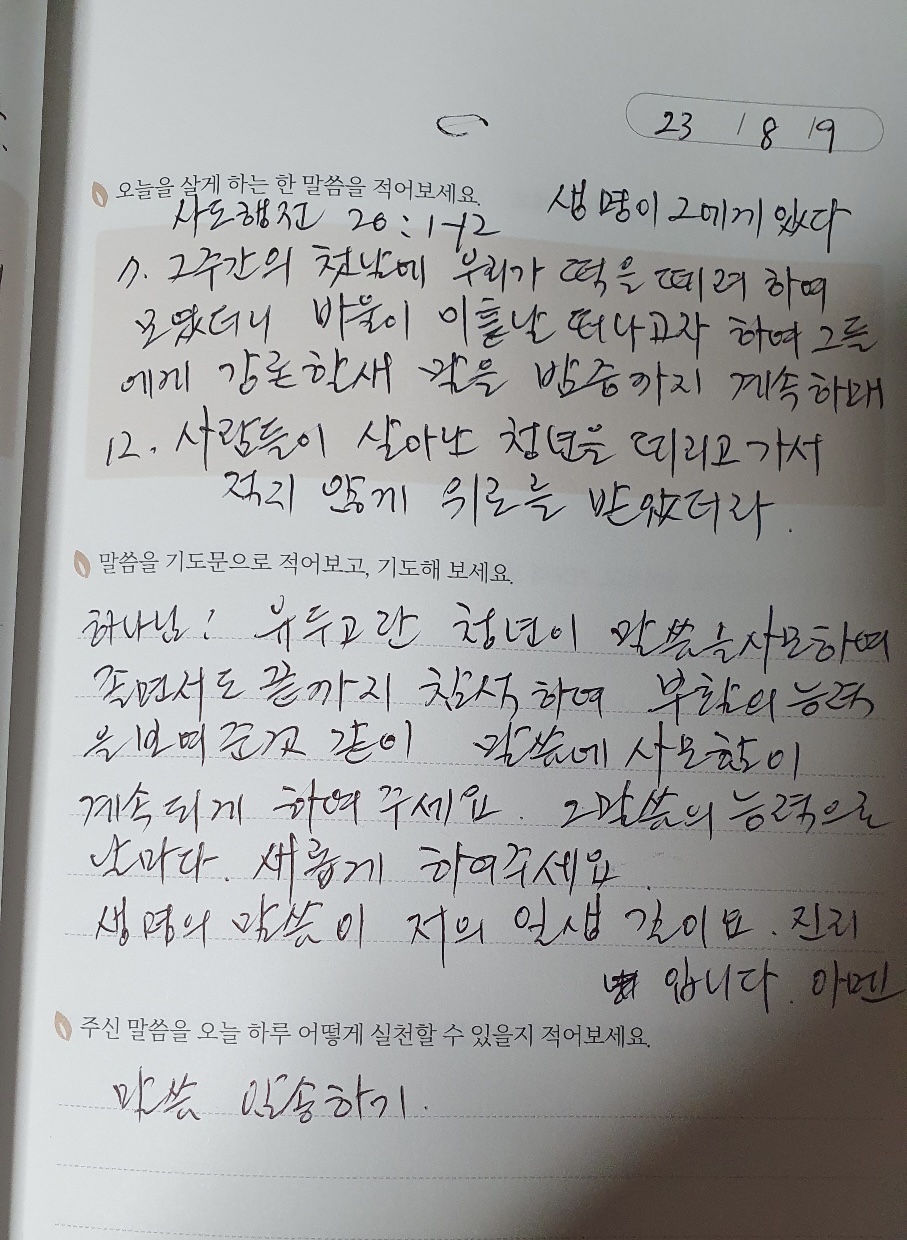 23 / 8 / 9
오늘을 살게 하는 한 말씀을 적어보세요.
사도행전 20:1-12 생명이 그에게 있다
7. 그주간의 첫날에 우리가 떡을 떼려 하여
모였더니 바울이 이튿날 떠나고자 하여 그들
에게 강론할새 말을 밤중까지 계속하매
12. 사람들이 살아난 청년을 떼리고가서
적지 않게 위로를 받았더라.
말씀을 기도문으로 적어보고, 기도해 보세요.
하나님! 유두고란 청년이 말씀을 사모하여
졸면서도 끝까지 참석하여 부활의 능력
을 보여준것 같이 말씀에 사모함이
계속되게 하여주세요. 그말씀의 능력으로
날마다. 새롭게 하여주세요.
생명의 말씀이 저의 일생 길이요. 진리
입니다. 아멘
주신 말씀을 오늘 하루 어떻게 실천할 수 있을지 적어보세요.
말씀 암송하기.